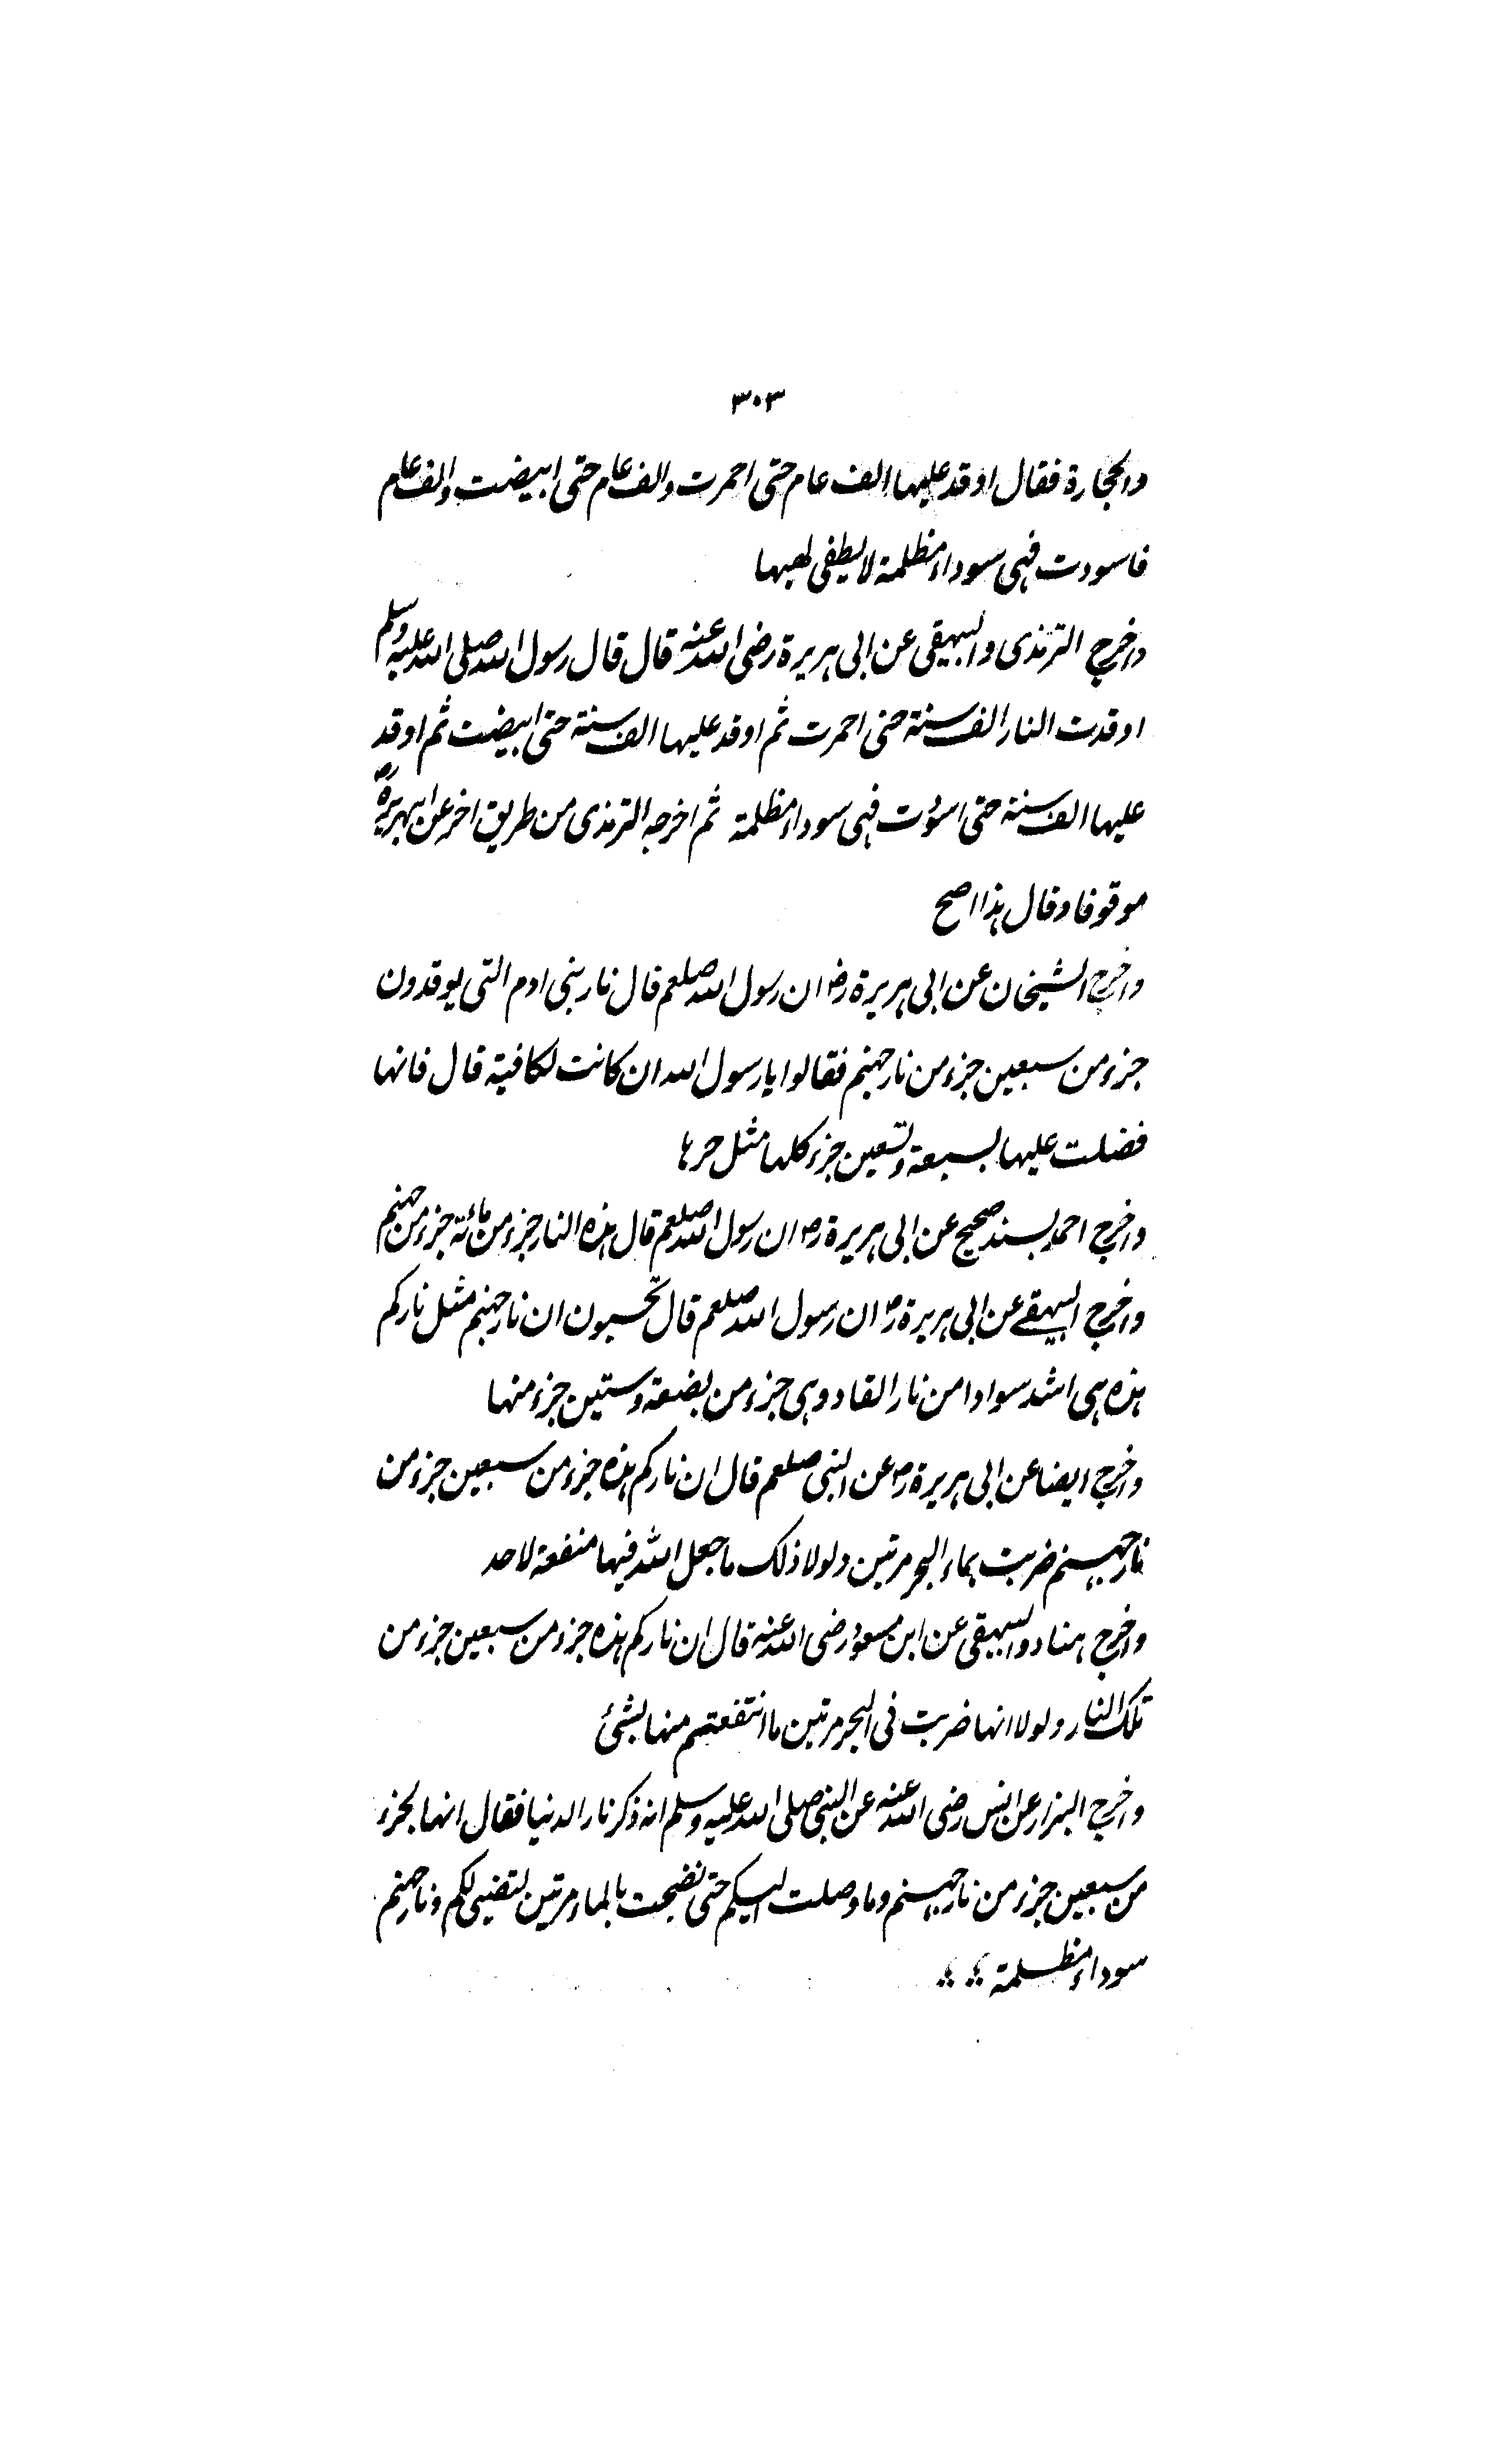 ٣٠٣
والحجارة فقال اوقد عليها الف عام حتى احمرت والف عام حتى ابيضت والف عام
فاسودت فهى سوداء مظلمة لا يطفى لهبها
واخرج الترمذى والبيهقى عن ابى هريرة رضى الله عنه قال قال رسول الله صلى الله عليه وسلم
اوقدت النار الف سنة حتى احمرت ثم اوقد عليها الف سنة حتى ابيضت ثم اوقد
عليها الف سنة حتى اسودت فهى سوداء مظلمة ثم اخرجه الترمذى من طريق اخر عن ابى هريرة رض
موقوفا وقال هذا اصح
واخرج الشيخان عن ابى هريرة رض ان رسول الله صلعم قال نار بنى ادم التى يوقدون
جزء من سبعين جزء من نار جهنم فقالوا يا رسول الله ان كانت لكافية قال فانها
فضلت عليها بسبعة وتسعين جزء كلها مثل حرها
واخرج احمد بسند صحيح عن ابى هريرة رض ان رسول الله صلعم قال هذه النار جزء من مائة جزء من جهنم
واخرج البيهقى عن ابى هريرة رض ان رسول الله صلعم قال تحسبون ان نار جهنم مثل ناركم
هذه هى اشد سوادا من نار القار وهى جزء من بضعة وستين جزء منها
واخرج ايضا عن ابى هريرة رض عن النبى صلعم قال ان ناركم هذه جزء من سبعين جزء من
نار جهنم ضربت بماء البحر مرتين ولولا ذلك ما جعل الله فيها منفعة لاحد
واخرج هناد والبيهقى عن ابن مسعود رضى الله عنه قال ان ناركم هذه جزء من سبعين جزء من
تلك النار ولولا انها ضربت فى البحر مرتين ما انتفعتم منها بشئ
واخرج البزار عن انس رضى الله عنه عن النبى صلى الله عليه وسلم انه ذكر نار الدنيا فقال انها لجزء
من سبعين جزء من نار جهنم وما وصلت اليكم حتى نضحت بالماء مرتين لتضئ لكم ونار جهنم
سوداء مظلمة